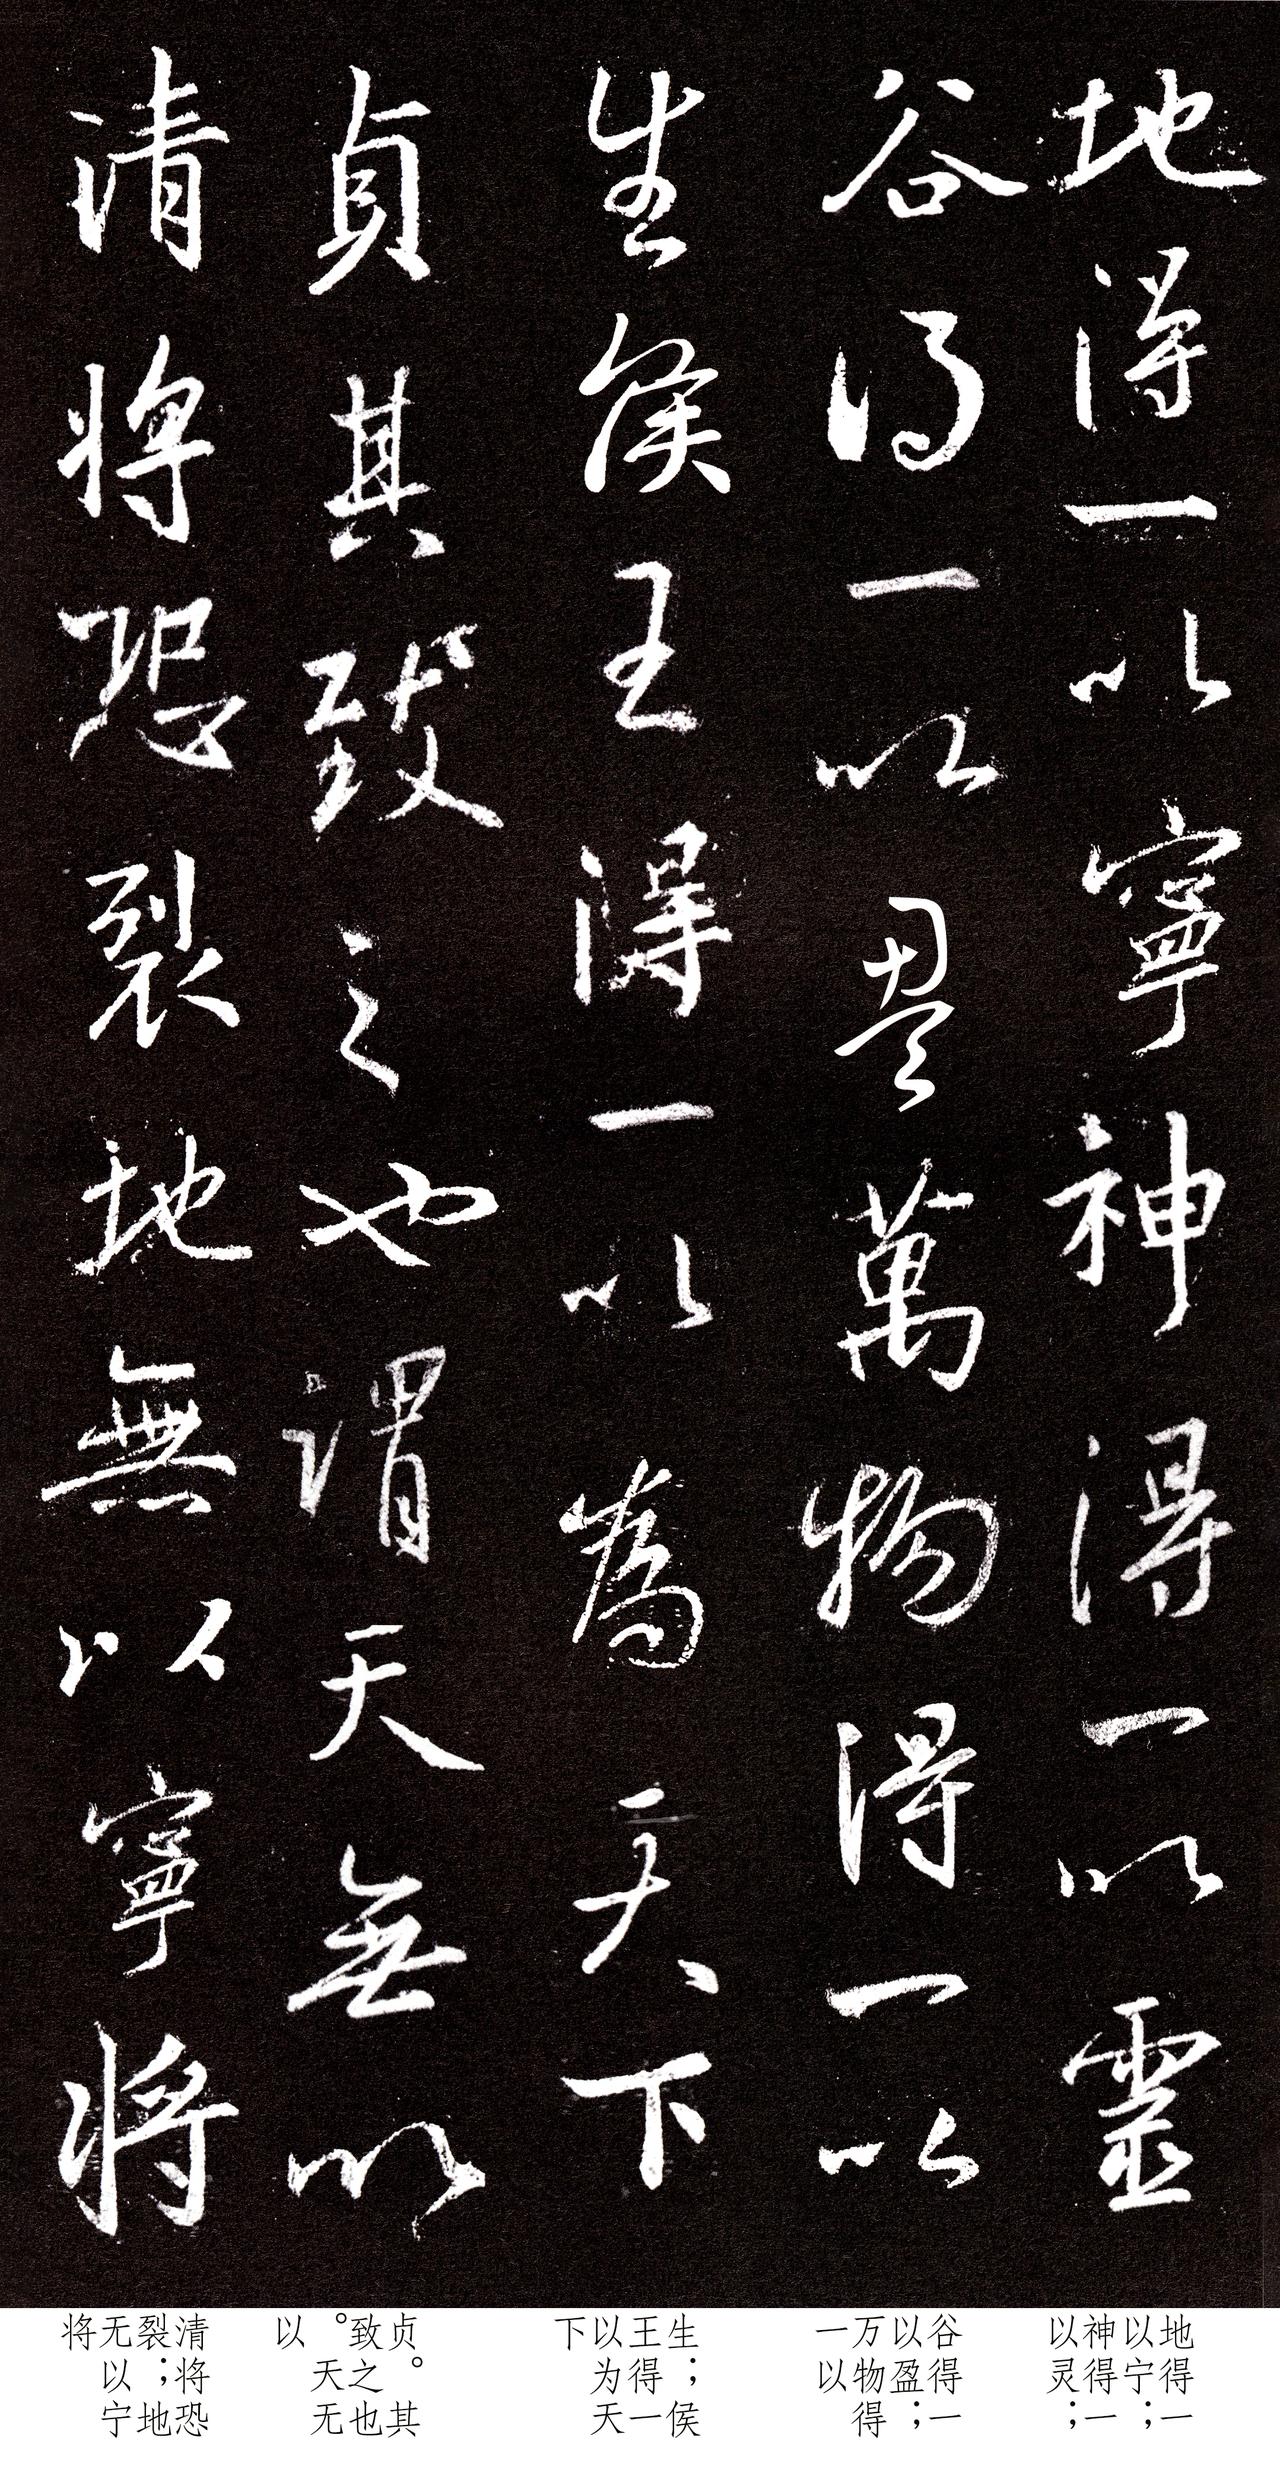 地得一以寧神得一以靈
谷得一以盈萬物得一以
生侯王得一以為天下
貞其致之也謂天無以
清將恐裂地無以寧將
地得一
以宁；
神得一
以灵；
谷得一
以盈；
万物得
一以
生；侯
王得一
以为天
下
贞。其
致之也
。天无
以
清将恐
裂；地
无以宁
将